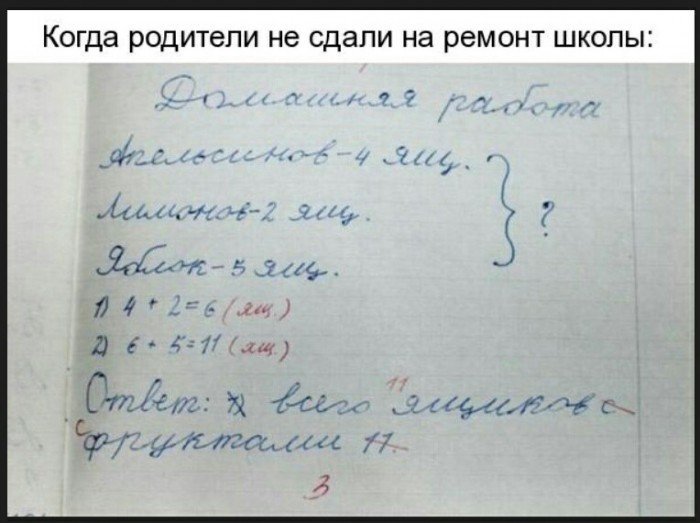 Когда родители не сдали на ремонт школы:
Домашняя работа
Апельсинов-4 ящ.
Лимонов-2 ящ. } ?
Яблок-5 ящ.
1) 4 + 2=6 (ящ.)
2) 6 + 5=11 (ящ.)
11
Ответ: всего ящиков с
с фруктами 11.
3